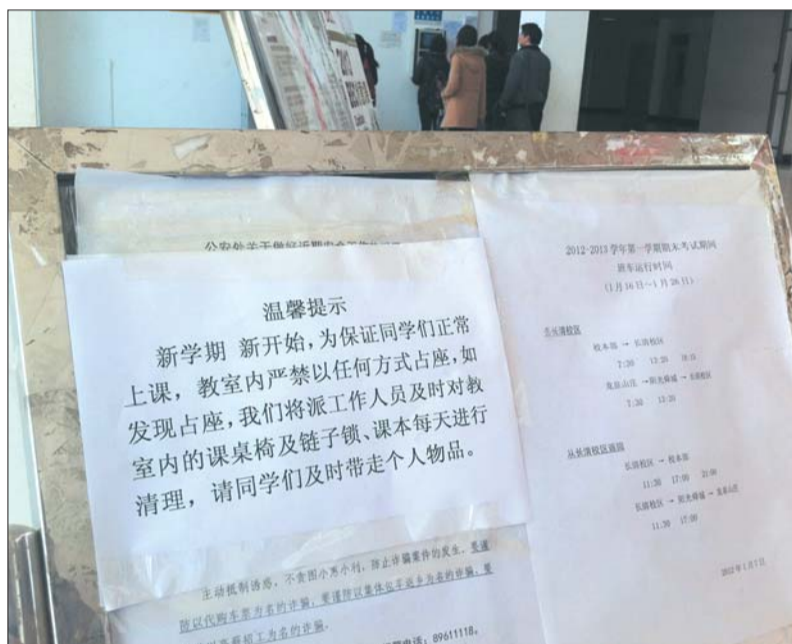 公安处关于做好近期安全
温馨提示
新学期 新开始，为保证同学们正常
上课，教室内严禁以任何方式占座，如
发现占座，我们将派工作人员及时对教
室内的课桌椅及链子锁、课本每天进行
清理，请同学们及时带走个人物品。
主动抵制诱惑，不贪图小恩小利，防止诈骗案件的发生。要谨
防以代购车票为名的诈骗，要谨防以集体包车返乡为名的诈骗，要
招工为名的诈骗。
电话：89611118。
2012-2013 学年第一学期期末考试期间
班车运行时间
（1月16日～1月26日）
去长清校区
校本部 → 长清校区
7:30 13:20
龙泉山庄 → 阳光舜城 → 长清校区
7:30 13:20
从长清校区返回
长清校区 → 校本部
11:30 17:00 21:00
长清校区 → 阳光舜城 → 龙泉山庄
11:30 17:00
1月7日